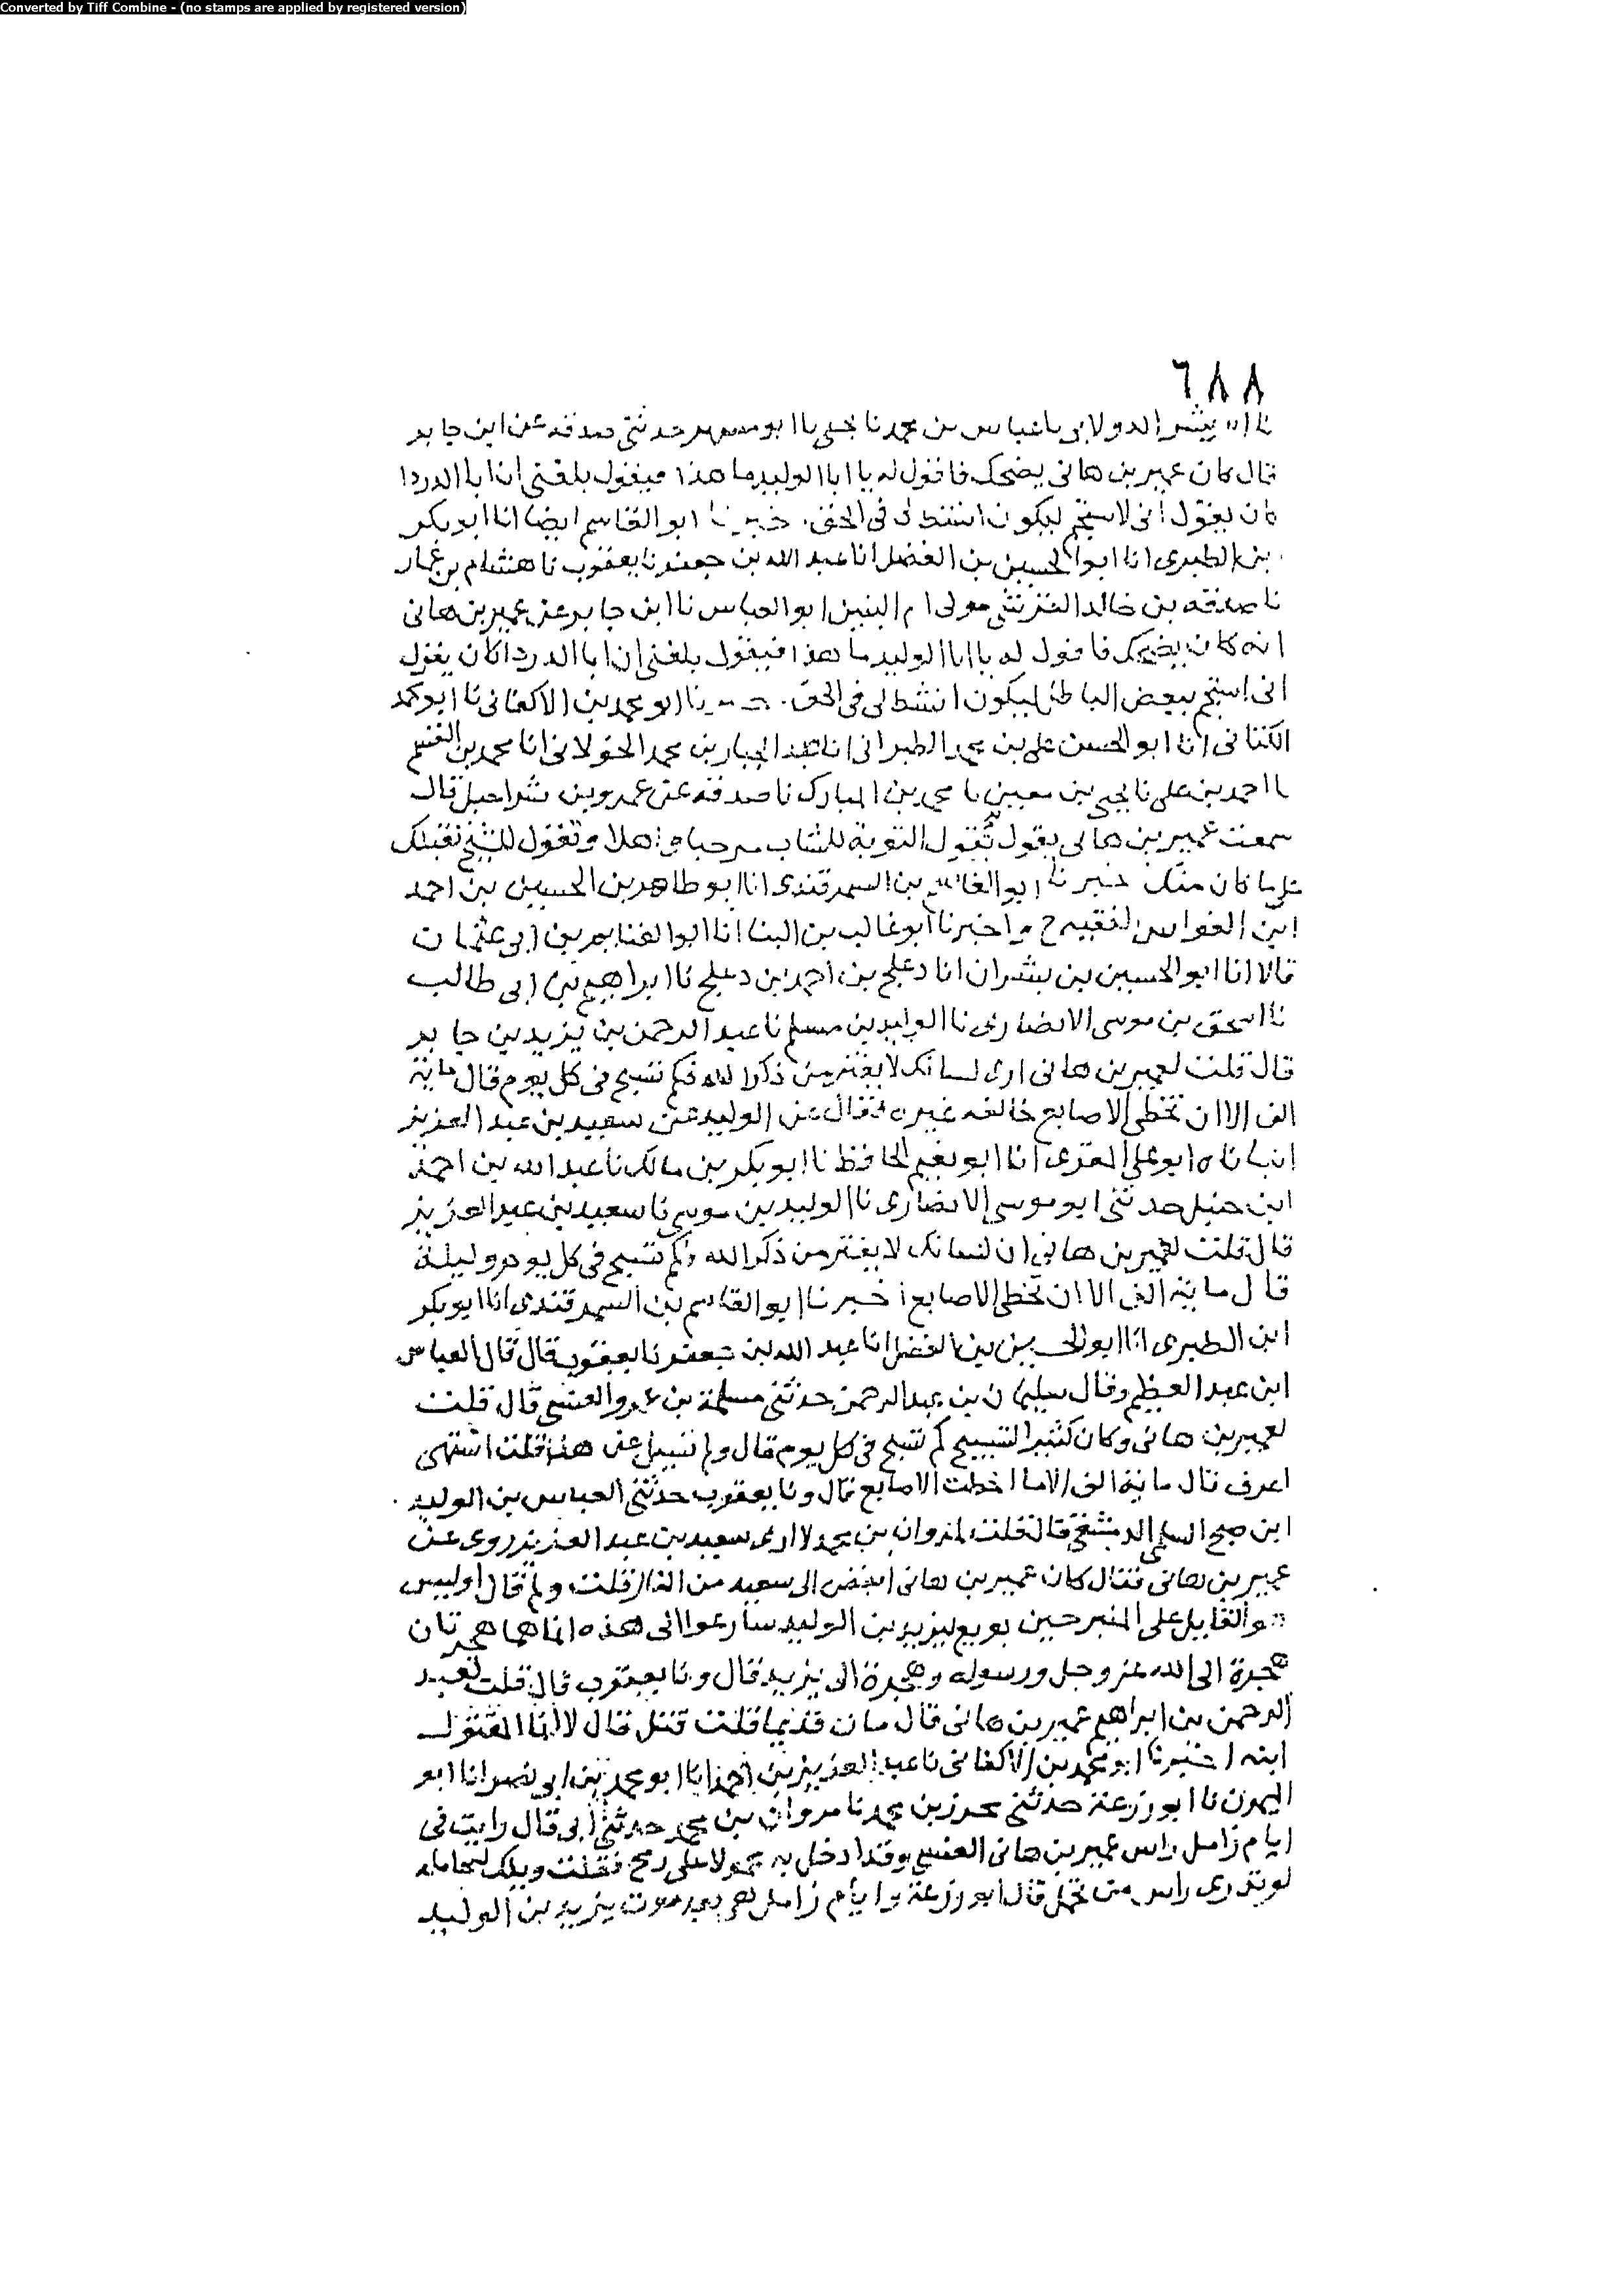 Converted by Tiff Combine - (no stamps are applied by registered version)
٦٨٨
نا ابو بشر الدولابى نا عباس بن محمد نا يحيى نا ابو مسهر حدثنى صدقه عن ابن جابر
قال كان عمير بن هانى يضحك فاقول له يا ابا الوليد ما هذا فيقول بلغنى ان ابا الدردا
كان يقول انى لاستجم ليكون انشط لى فى الحق. خبرنا ابو القاسم ايضا انا ابو بكر
بن الطبرى انا ابو الحسين بن الفضل انا عبد الله بن جعفر نا يعقوب نا هشام بن عمار
نا صدقه بن خالد القرشى مولى ام البنين ابو العباس نا ابن جابر عن عمير بن هانى
انه كان يضحك فاقول له يا ابا الوليد ما هذا فيقول بلغنى ان ابا الدردا كان يقول
انى استجم ببعض الباطل ليكون انشط لى فى الحق. نا ابو محمد بن الاكفانى نا ابو محمد
الكتانى انا ابو الحسن على بن محمد الطبرانى انا عبد الجبار بن محمد الخولانى انا محمد بن القسم
نا احمد بن على نا يحيى بن معين نا محمد بن المبارك نا صدقه عن عمرو بن شراحيل قال
سمعت عمير بن هانى يقول تقول التوبة للشاب مرحبا و اهلا وتقول للشيخ نقبلك
على ما كان منك خبرنا ابو القاسم بن السمرقندى انا ابو طاهر بن الحسين بن احمد
ابن القواس الفقيه ح و اخبرنا ابو غالب بن البنا انا ابو الغنايم بن ابى عثمان
قالا انا ابو الحسين بن بشران انا دعلج بن احمد بن دعلج نا ابراهيم بن ابى طالب
نا اسحق بن موسى الانصارى نا الوليد بن مسلم نا عبد الرحمن بن يزيد بن جابر
قال قلت لعمير بن هانى ارى لسانك لا يفتر من ذكر الله فكم تسبح فى كل يوم قال ماية
الف الا ان تخطى الاصابع خالفه غيره فقال عن الوليد عن سعيد بن عبد العزيز
انباناه ابو على المقرى انا ابو نعيم الحافظ نا ابو بكر بن مالك نا عبد الله بن احمد
ابن حنبل حدثنى ابو موسى الانصارى نا الوليد بن موسى نا سعيد بن عبد العزيز
قال قلت لعمير بن هانى ان لسانك لا يفتر من ذكر الله فكم تسبح فى كل يوم وليلة
قال ماية الف الا ان تخطى الاصابع اخبرنا ابو القاسم بن السمرقندى انا ابو بكر
ابن الطبرى انا ابو الحسين بن الفضل انا عبد الله بن جعفر نا يعقوب قال قال العباس
ابن عبد العظيم وقال سليمان بن عبد الرحمن حدثنى مسلمة بن عمرو العنسى قال قلت
لعمير بن هانى وكان كثير التسبيح كم تسبح فى كل يوم قال ولم تسيل عن هذا قلت اشتهى
اعرف قال ماية الف الا ما اخطت الاصابع قال ونا يعقوب حدثنى العباس بن الوليد
ابن صبح السلمى الدمشقى قال قلت لمروان بن محمد لا ارى سعيد بن عبد العزيز روى عن
عمير بن هانى فقال كان عمير بن هانى ابغض الى سعيد من النار قلت ولم قال اوليس
هو القايل على المنبر حين بويع ليزيد بن الوليد سارعوا الى هذه انما هما هجرتان
هجرة الى الله عز وجل ورسوله وهجرة الى يزيد قال ونا يعقوب قال قلت لعبد
الرحمن بن ابراهيم عمير بن هانى قال مات قديما قلت قتل قال لا انما المقتول
ابنه اخبرنا ابو محمد بن الاكفانى نا عبد العزيز بن احمد انا ابو محمد بن ابى نصر انا ابو
الميمون نا ابو زرعة حدثنى محرز بن محمد نا مروان بن محمد حدثنى ابى قال رايت فى
ايام زامل راس عمير بن هانى العنسى وقد ادخل به محمولا على رمح فقلت ويلك لحامله
لو تدرى راس من تحمل قال ابو زرعة و ايام زامل هو بعد موت يزيد بن الوليد